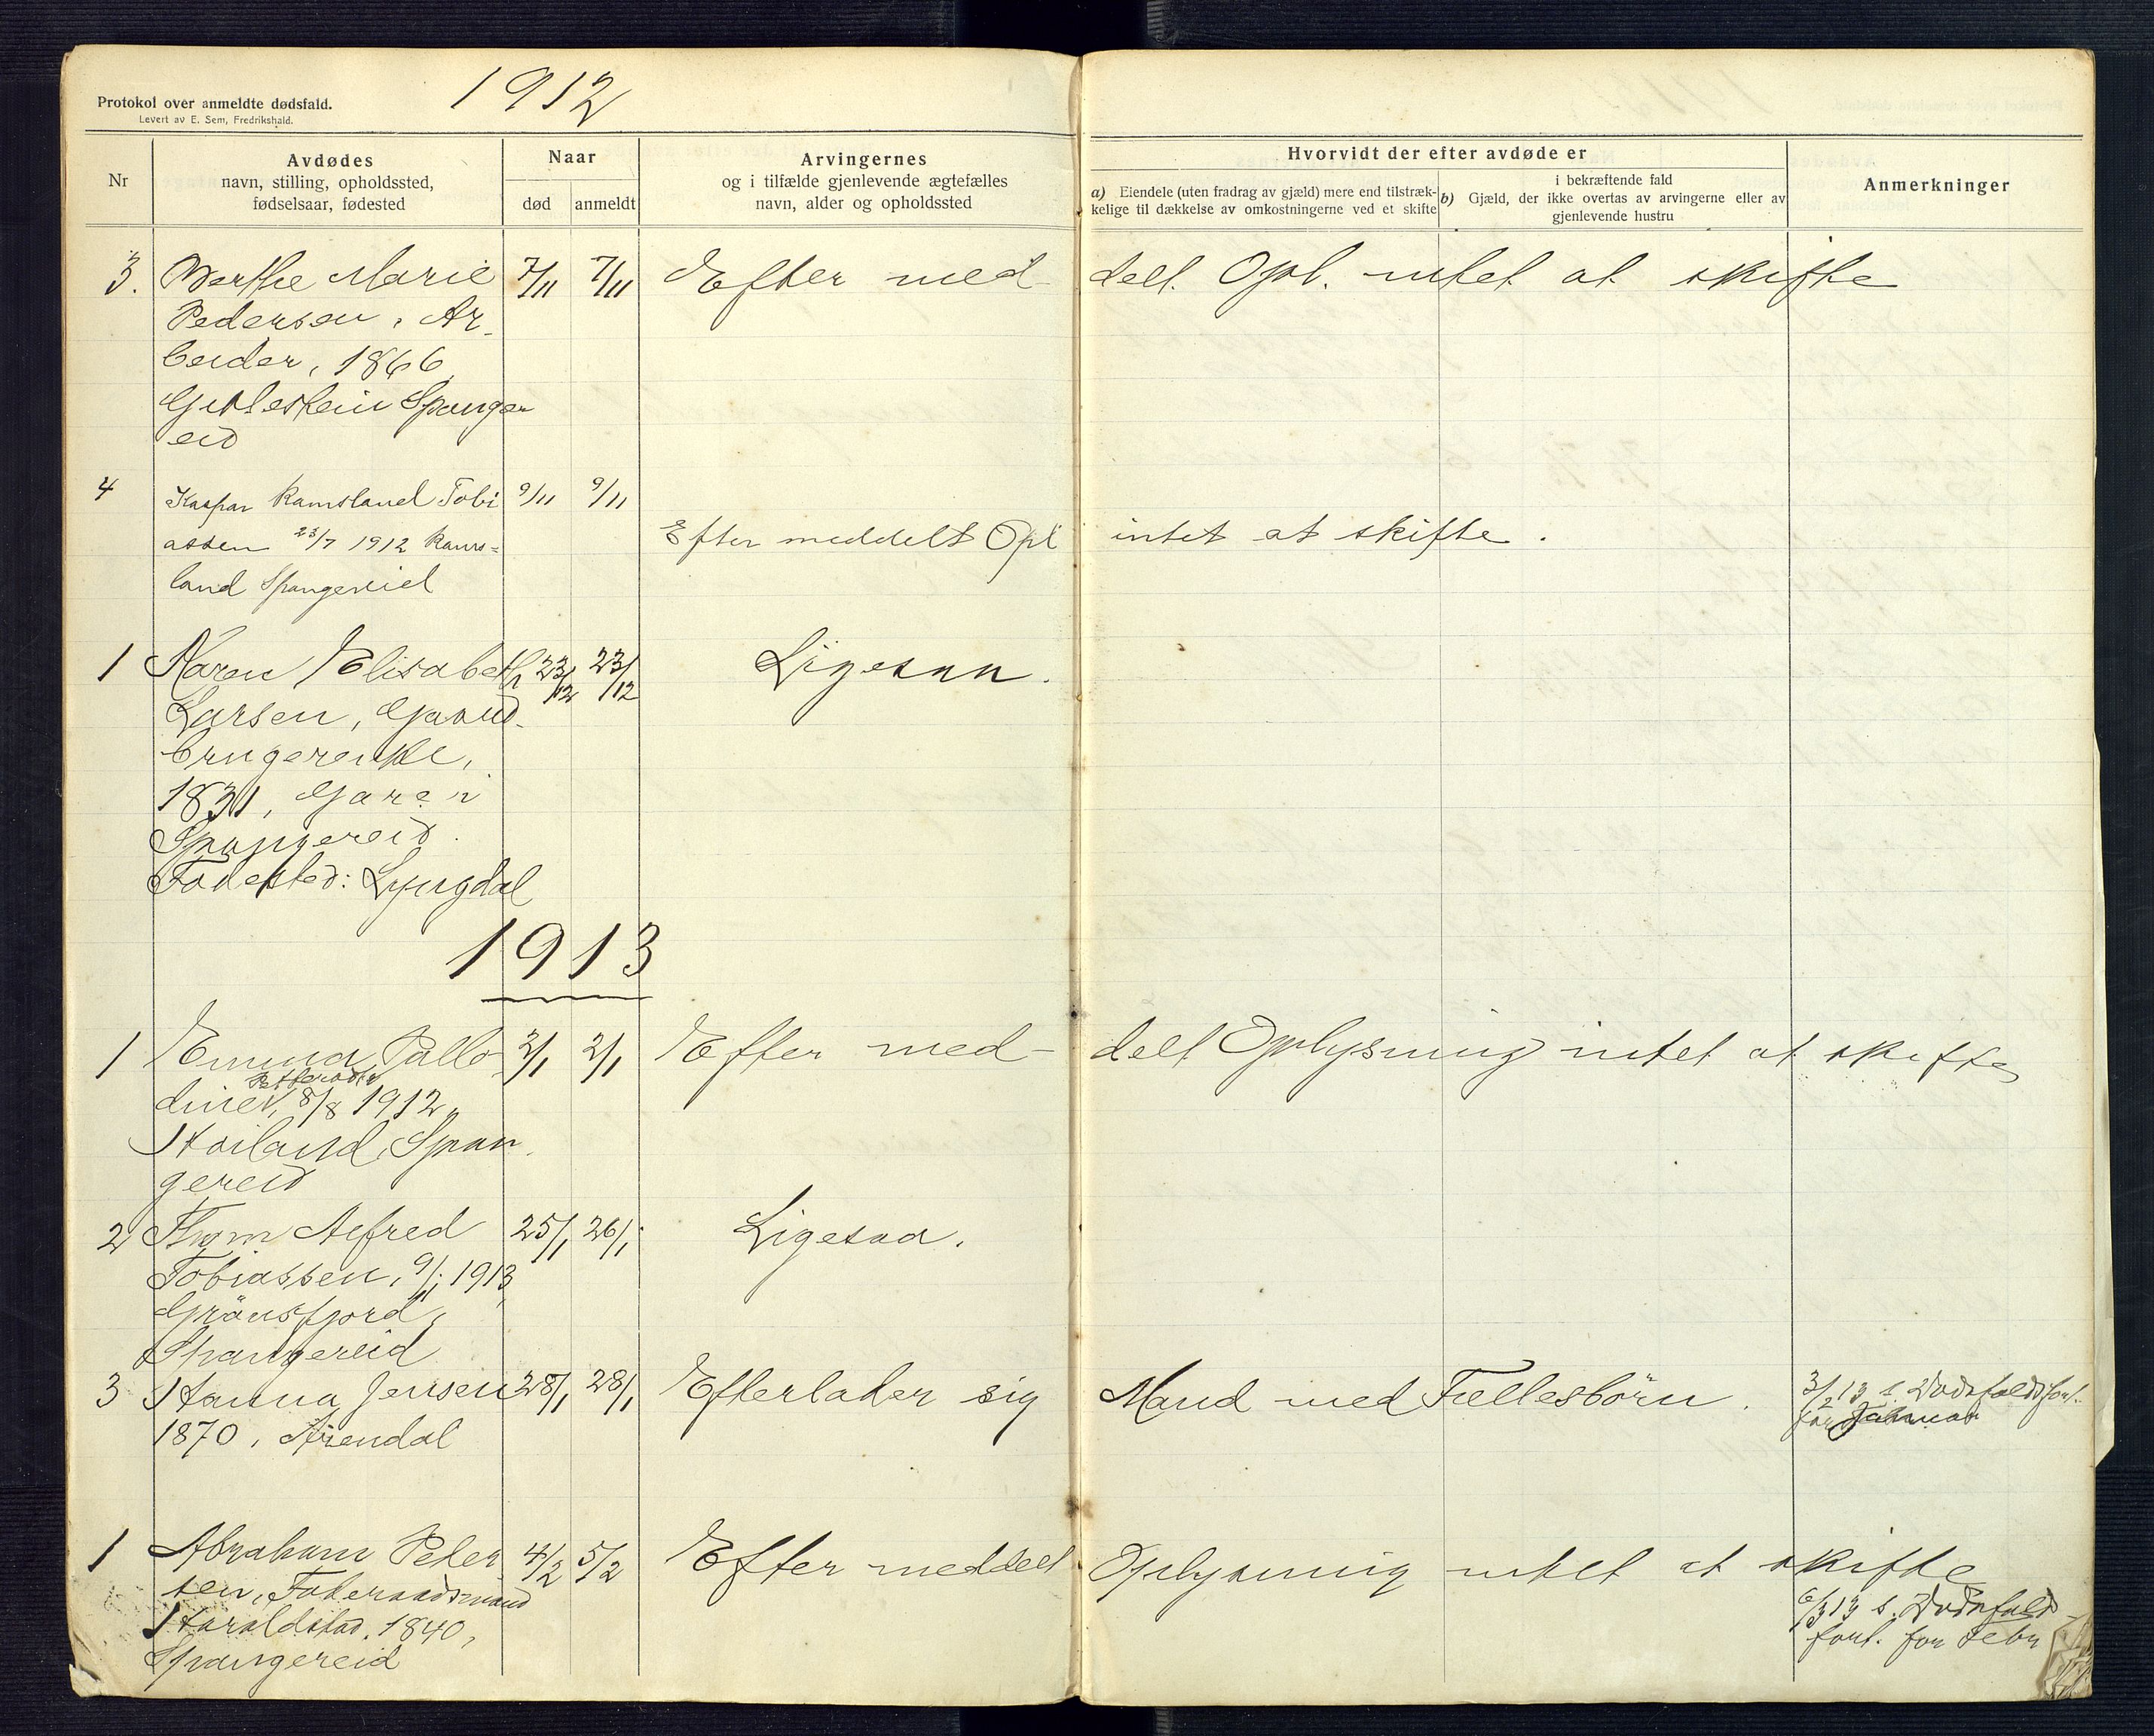 1912
Protokol over anmeldte dødsfald.
Levert av E. Sem, Fredrikshald.
Nr
Avdødes
navn, stilling, opholdssted,
fødselsaar, fødested
Naar
død
anmeldt
Arvingernes
og i tilfælde gjenlevende ægtefælles
navn, alder og opholdssted
Hvorvidt der efter avdøde er
a) Eiendele (uten fradrag av gjæld) mere end tilstræk-
kelige til dækkelse av omkostningerne ved et skifte
i bekræftende fald
b) Gjæld, der ikke overtas av arvingerne eller av
gjenlevende hustru
Anmerkninger
3. Berthe Marie 7/11 7/11 Efter med delt. Opl. intet at skifte
Pedersen, Ar-
beider, 1866,
Gitlestein Spanger
eid
4 Kaspar Ramsland Tobi 9/11 9/11
assen 23/7 1912 Rams= Efter meddelt Opl intet at skifte.
land Spangereid
1 Karen Elisabeth 23/12 23/12 Ligesaa.
Larsen, Gaard-
brugerenke,
1831, Gare i
Spangereid.
Fødested: Lyngdal
1913
1 Emma Pallo- 2/1 2/1 Efter med- delt Oplysning intet at skifte
Pettersdtr
dine, 8/8 1912,
Høiland, Span
gereid
2 Thom Alfred 25/1 26/1 Ligesaa.
Tobiassen, 9/1 1913,
Grönsfjord,
Spangereid
3 Hanna Jensen 28/1 28/1 Efterlader sig Mand med Fællesbörn. 3/2 13 s. Dødsfaldsfort.
1870, Arendal for Januar
1 Abraham Peder 4/2 5/2 Efter meddelt Oplysning intet at skifte
sen, Foderaadsmand 6/3 13 s. Dødsfald-
Haraldstad, 1840, fort. for Febr
Spangereid